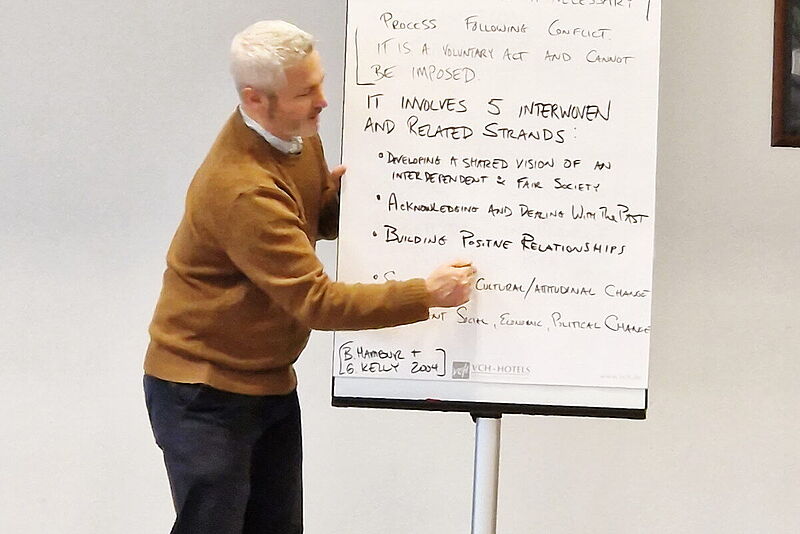 NECESSARY
PROCESS FOLLOWING CONFLICT.
IT IS A VOLUNTARY ACT AND CANNOT
BE IMPOSED.
IT INVOLVES 5 INTERWOVEN
AND RELATED STRANDS:
• DEVELOPING A SHARED VISION OF AN
INTERDEPENDENT & FAIR SOCIETY
• ACKNOWLEDGING AND DEALING WITH THE PAST
• BUILDING POSITIVE RELATIONSHIPS
• CULTURAL/ATTITUDINAL CHANGE
SOCIAL, ECONOMIC, POLITICAL CHANGE
[B. HAMBUR +
G. KELLY 2004]
vch VCH-HOTELS